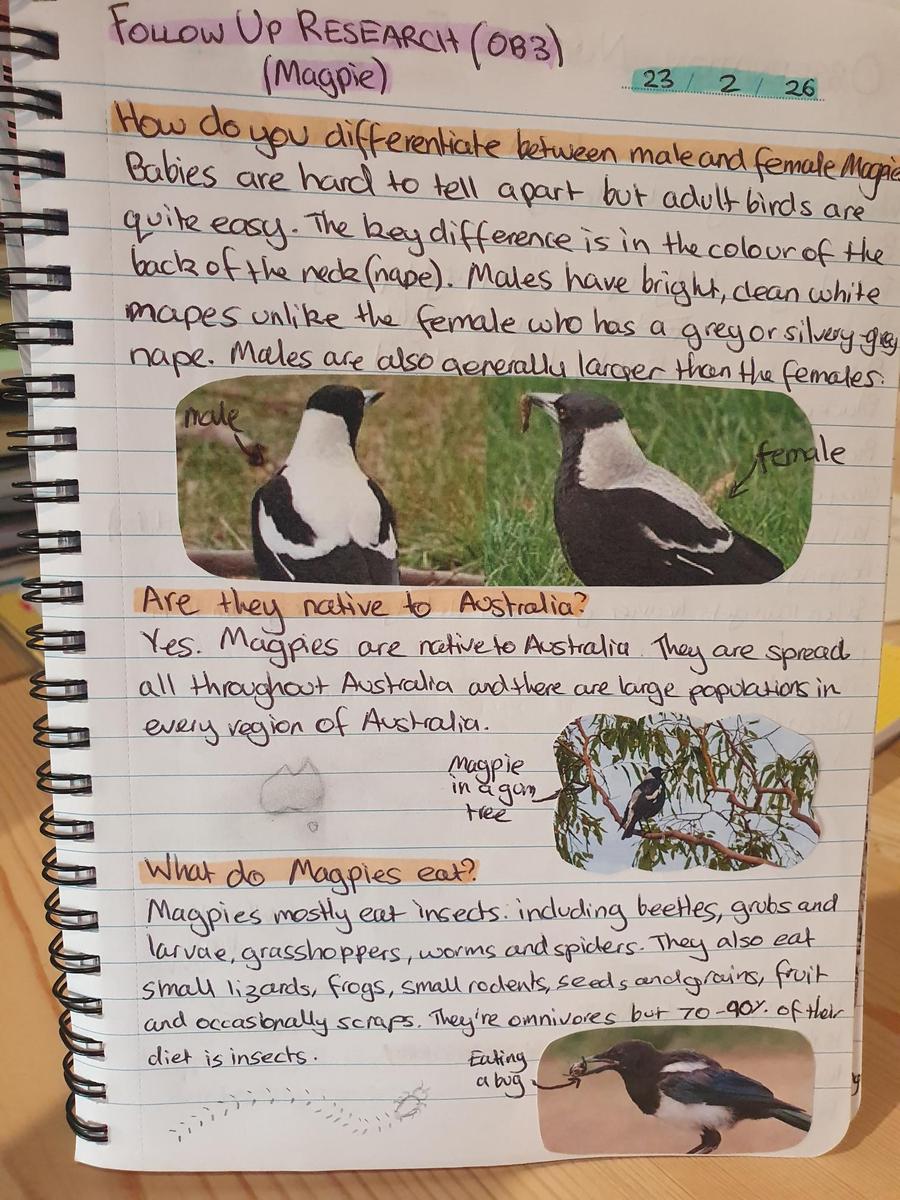 FOLLOW UP RESEARCH (OB3)
(Magpie)
23 / 2 / 26
How do you differentiate between male and female Magpie
Babies are hard to tell apart but adult birds are
quite easy. The key difference is in the colour of the
back of the neck (nape). Males have bright, clean white
mapes unlike the female who has a grey or silvery-grey
nape. Males are also generally larger than the females.
male
female
Are they native to Australia?
Yes. Magpies are native to Australia. They are spread
all throughout Australia and there are large populations in
every region of Australia.
Magpie
in a gum
tree
What do Magpies eat?
Magpies mostly eat insects: including beetles, grubs and
larvae, grasshoppers, worms and spiders. They also eat
small lizards, frogs, small rodents, seeds and grains, fruit
and occasionally scraps. They're omnivores but 70-90% of their
diet is insects.
Eating
a bug